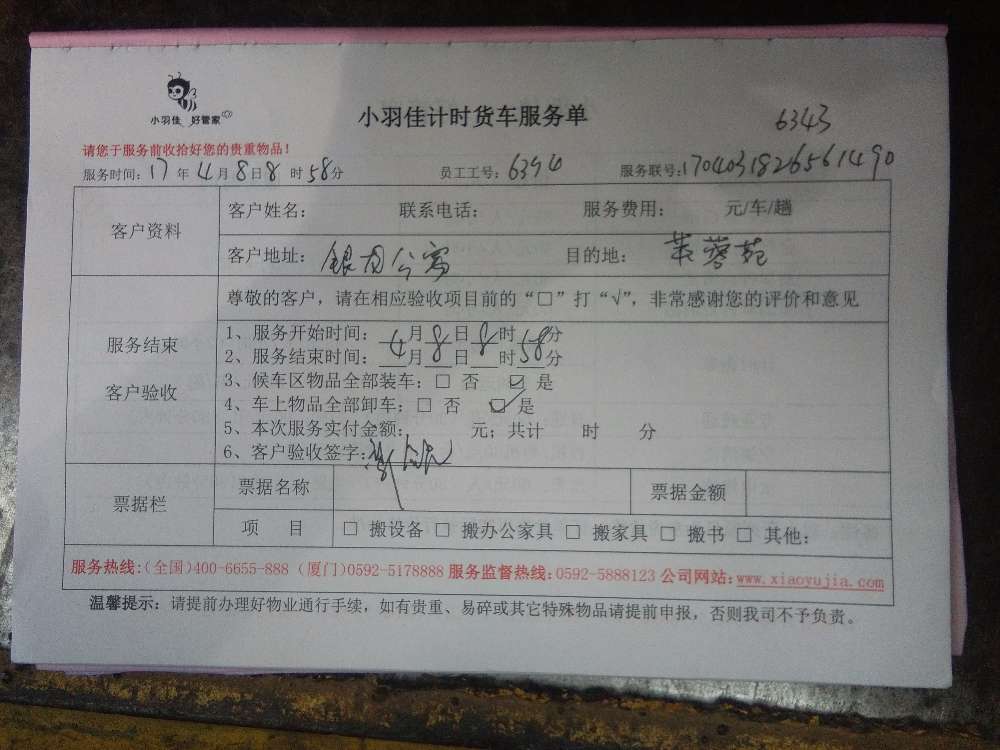 小羽佳 好管家
小羽佳计时货车服务单
6343
请您于服务前收拾好您的贵重物品！
服务时间：17年4月8日8时58分 员工工号：6394 服务联号：1704031826561490
客户资料
客户姓名： 联系电话： 服务费用： 元/车/趟
客户地址：银局公寓 目的地：芙蓉苑
服务结束
客户验收
尊敬的客户，请在相应验收项目前的“□”打“√”，非常感谢您的评价和意见
1、服务开始时间：4月8日8时58分
2、服务结束时间： 月 日 时 分
3、候车区物品全部装车：□ 否 ☑ 是
4、车上物品全部卸车：□ 否 ☑ 是
5、本次服务实付金额： 元；共计 时 分
6、客户验收签字：
票据栏
票据名称 票据金额
项 目 □ 搬设备 □ 搬办公家具 □ 搬家具 □ 搬书 □ 其他：
服务热线：(全国)400-6655-888 (厦门)0592-5178888 服务监督热线：0592-5888123 公司网站：www.xiaoyujia.com
温馨提示：请提前办理好物业通行手续，如有贵重、易碎或其它特殊物品请提前申报，否则我司不予负责。